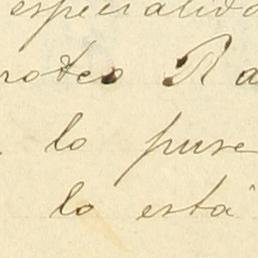 especialida
roteo Ra
lo puse
lo está